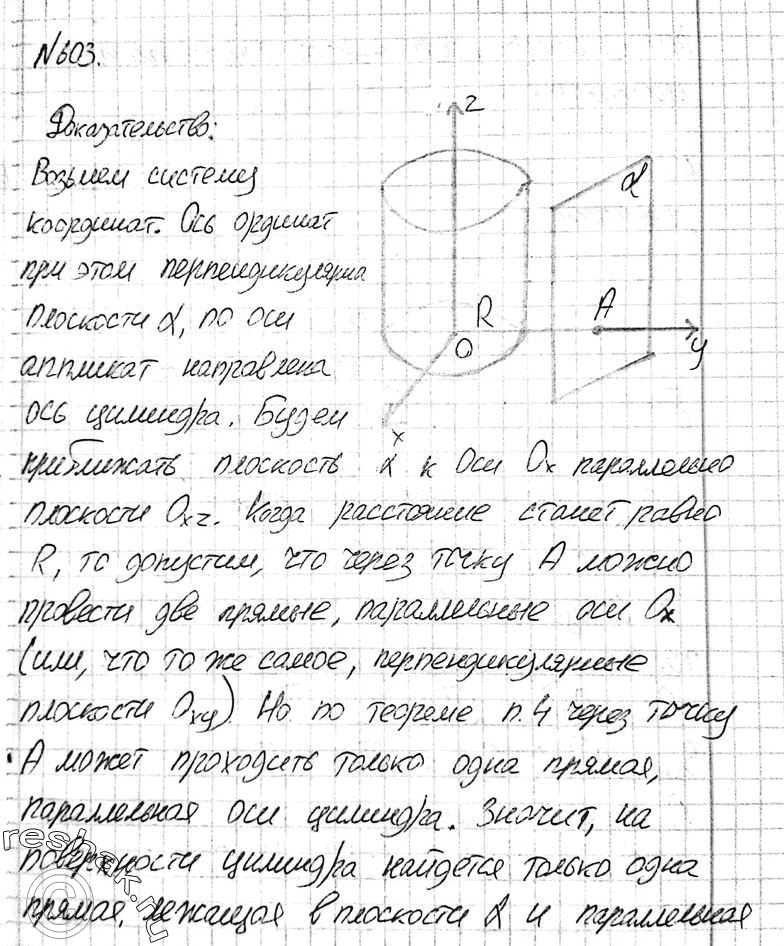 №603.
Доказательство:
Возьмем систему
координат. Ось ординат
при этом перпендикулярна
плоскости α, по оси
аппликат направлена
ось цилиндра. Будем
приближать плоскость α к оси Ox параллельно
плоскости Oxz. Когда расстояние станет равно
R, то допустим, что через точку A можно
провести две прямые, параллельные оси Ox
(или, что то же самое, перпендикулярные
плоскости Oxy) Но по теореме п.4 через точку
A может проходить только одна прямая,
параллельная оси цилиндра. Значит, на
поверхности цилиндра найдется только одна
прямая, лежащая в плоскости α и параллельная
z
α
R
A
O
y
x
reshak.ru